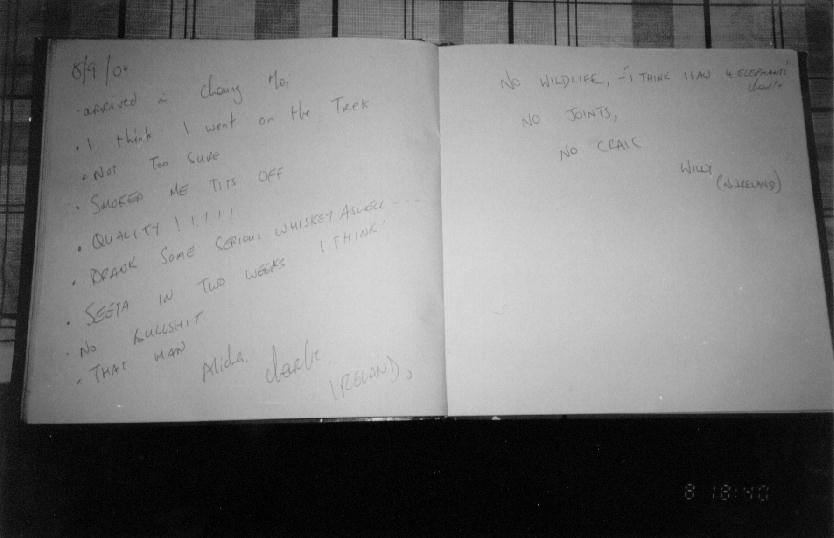 8/9/00
· arrived in Chang Mai
· I think I went on the Trek
· NOT TOO SURE
· SMOKED ME TITS OFF
· QUALITY !!!!!
· DRANK SOME SERIOUS WHISKEY ASWELL ---
· SEEYA IN TWO WEEKS I THINK
· NO BULLSHIT
· THAT MAN
Charlie
IRELAND,
NO WILDLIFE, - I THINK I SAW 4 ELEPHANTS
Charlie
NO JOINTS,
NO CRAIC
WILLY
(N.IRELAND)
8 18:40